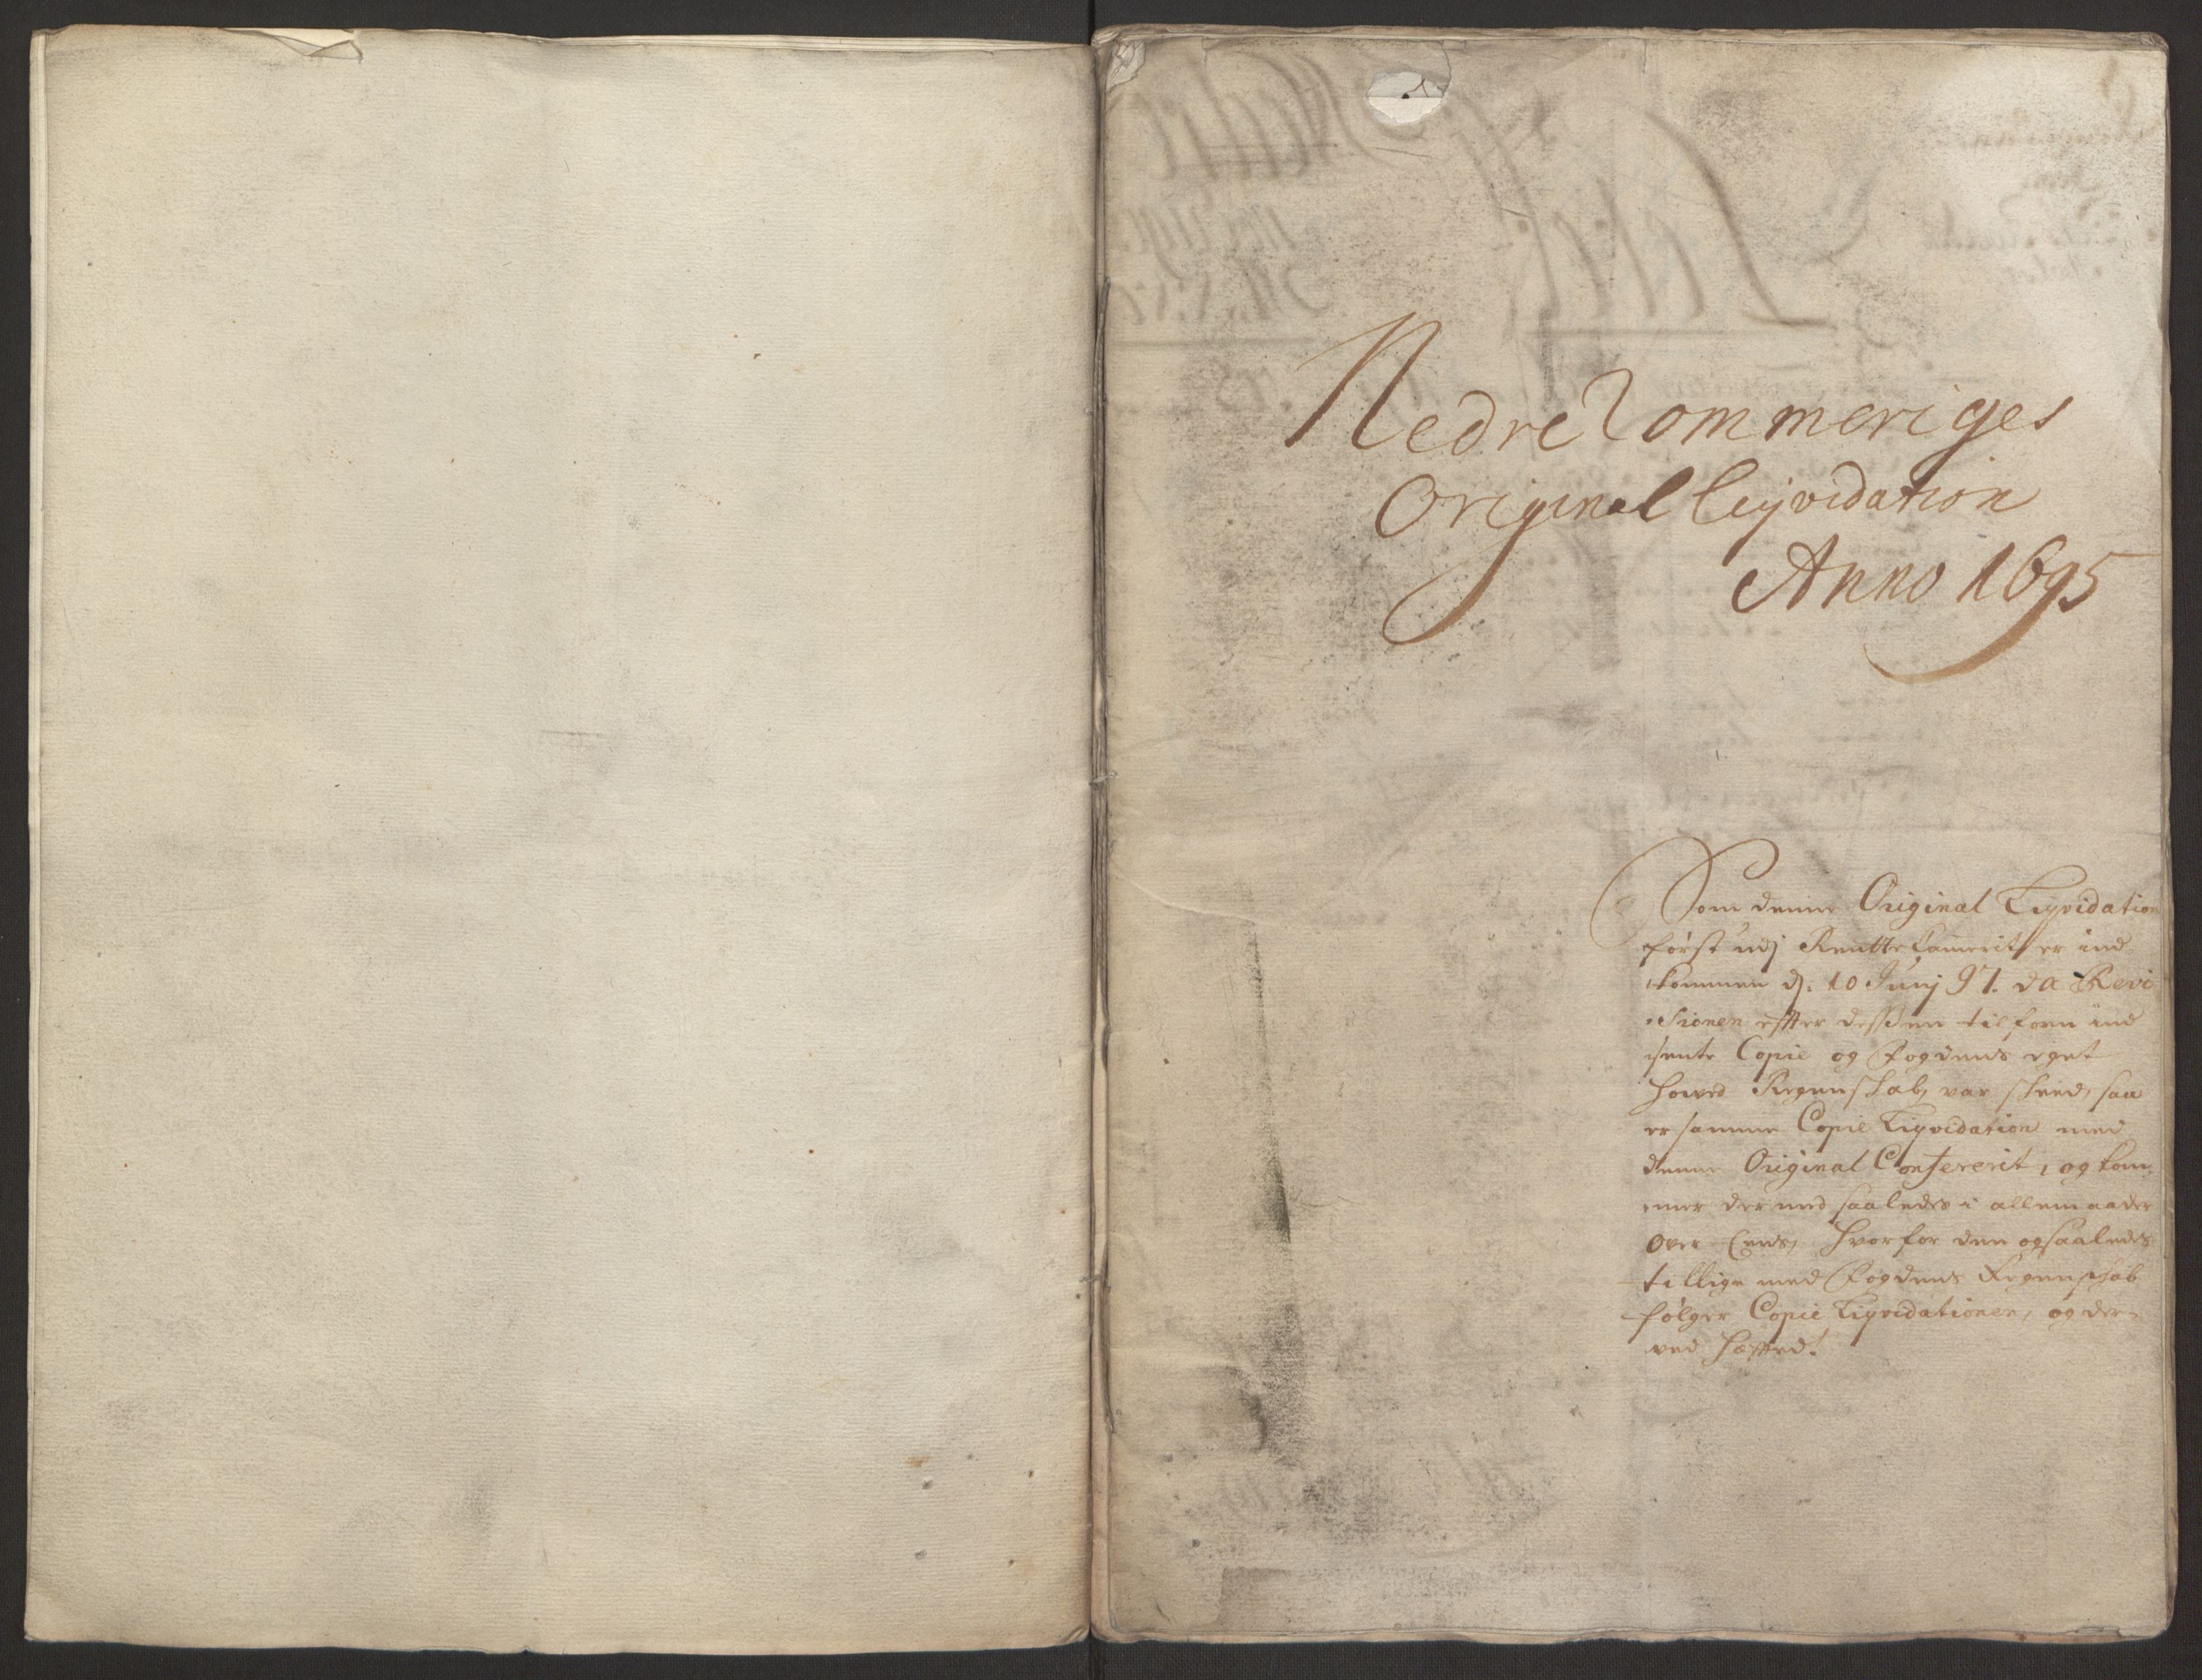 Nedre Rommeriges
Original Liqvidation
Anno 1695
Som denne Original Liqvidation
først udj Renttekamerit er ind
kommen dj: 10 Junj 97. da Revi
Sionen effter dessen tilforn ind
sente Copie og Fogdens eget
Hoved Regenskab, var skeed, saa
er samme Copie Liqvidation med
denne Original Confererit, og kom¬
mer dermed saaledes i allemaader
over Eens, Hvorfor den ogsaaledes
tillige med Fogdens Regenskab
følger Copie Liqvidationen, og der¬
ved Hæffted.